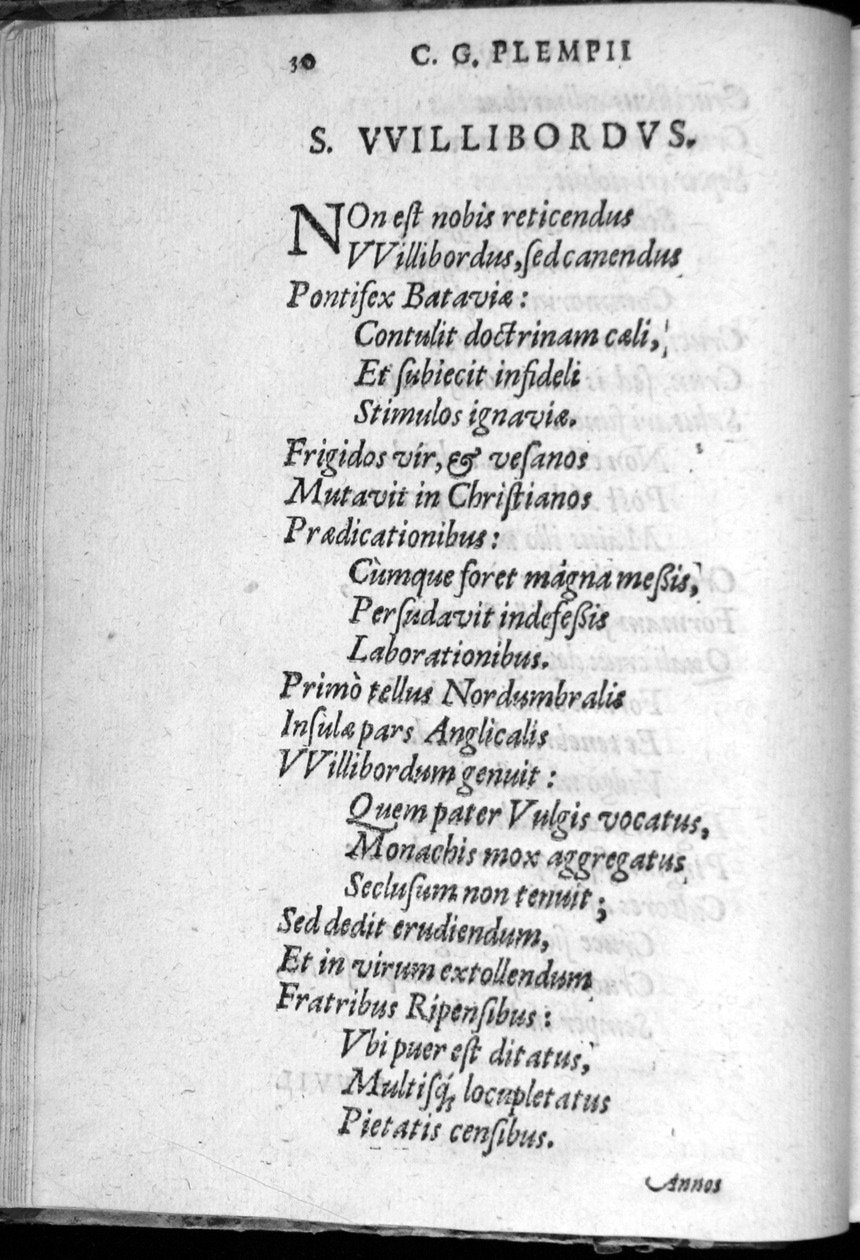 30 C. G. PLEMPII
S. VVILLIBORDVS.
NOn eſt nobis reticendus
VVillibordus, ſed canendus
Pontifex Bataviæ :
Contulit doctrinam cæli,
Et ſubiecit infideli
Stimulos ignaviæ.
Frigidos vir, & veſanos
Mutavit in Chriſtianos
Prædicationibus :
Cùmque foret magna meßis,
Perſudavit indefeßis
Laborationibus.
Primò tellus Nordumbralis
Inſulæ pars Anglicalis
VVillibordum genuit :
Quem pater Vulgis vocatus,
Monachis mox aggregatus
Secluſum non tenuit ;
Sed dedit erudiendum,
Et in virum extollendum
Fratribus Ripenſibus :
Vbi puer eſt ditatus,
Multiſq́; locupletatus
Pietatis cenſibus.
Annos